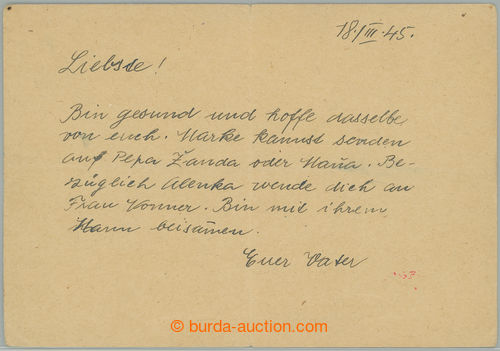 18./III.45.
Liebste!
Bin gesund und hoffe dasselbe
von euch. Marke kannst senden
auf Pepa Žanda oder Maňa. Be-
züglich Alenka wende dich an
Frau Konner. Bin mit ihrem
Mann beisam̄en.
Euer Vater
© burda-auction.com